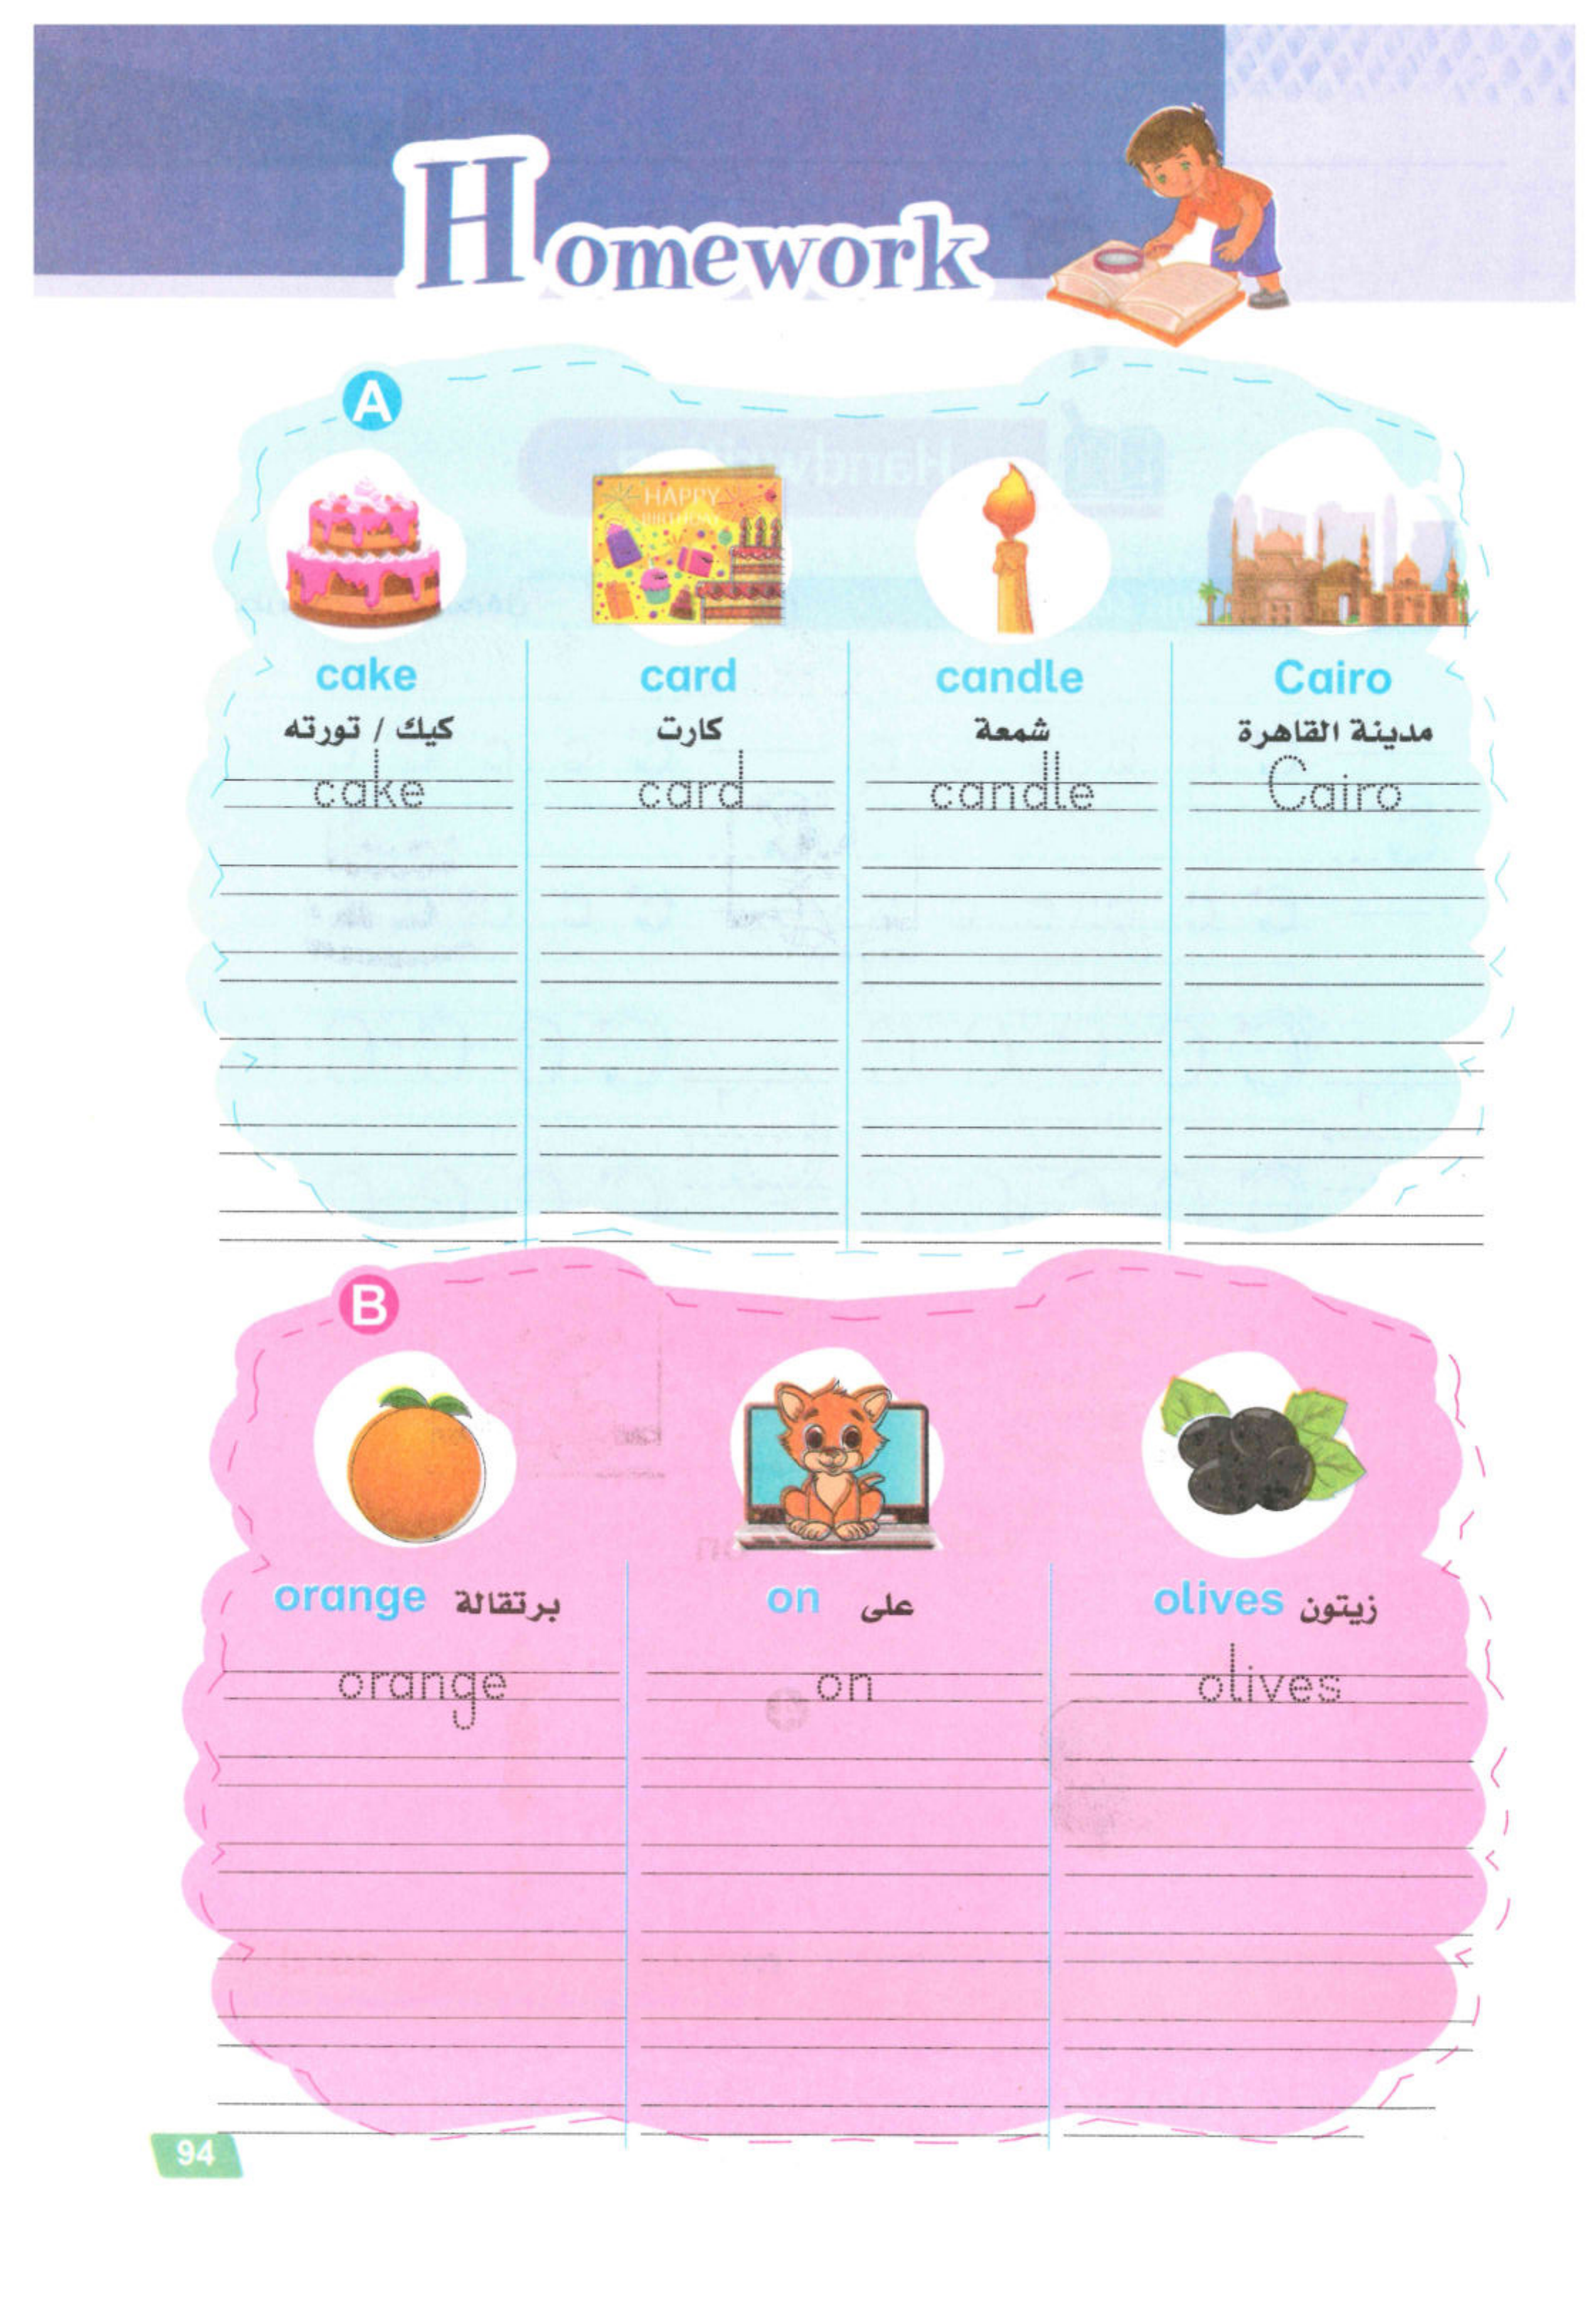 Homework
A
HAPPY
BIRTHDAY
cake card candle Cairo
كيك / تورته كارت شمعة مدينة القاهرة
cake card candle Cairo
B
orange برتقالة on على olives زيتون
orange on olives
94